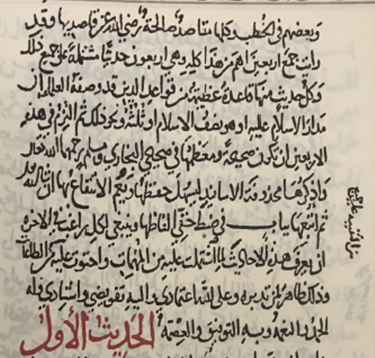 وبعضهم في الخطب وكلها مقاصد صالحة رضي الله عن قاصديها وقد
رايت جمع اربعين اهم من هذا كله وهي اربعون حديثا مشتملة على جميع ذلك
وكل حديث منها قاعدة عظيمة من قواعد الدين قد وصفه العلما بان
مدار الاسلام عليه او هو نصف الاسلام او ثلثه ونحو ذلك ثم التزم في هذه
الاربعين ان تكون صحيحة ومعظمها في صحيحي البخاري ومسلم رحمها الله تعالى
واذكرها محذوفة الاسانيد ليسهل حفظها ويعم الانتفاع بها ان شا الله
ثم اتبعها بباب في ضبط خفي الفاظها وينبغي لكل راغب في الاخرة
ان يعرف هذه الاحاديث لما اشتملت عليه من المهمات واحتوت عليه من الطاعات
وذلك ظاهر لمن تدبره وعلى الله اعتمادي واليه تفويضي واستنادي وله
الحمد والنعمة وبه التوفيق والعصمة
الحديث الاول